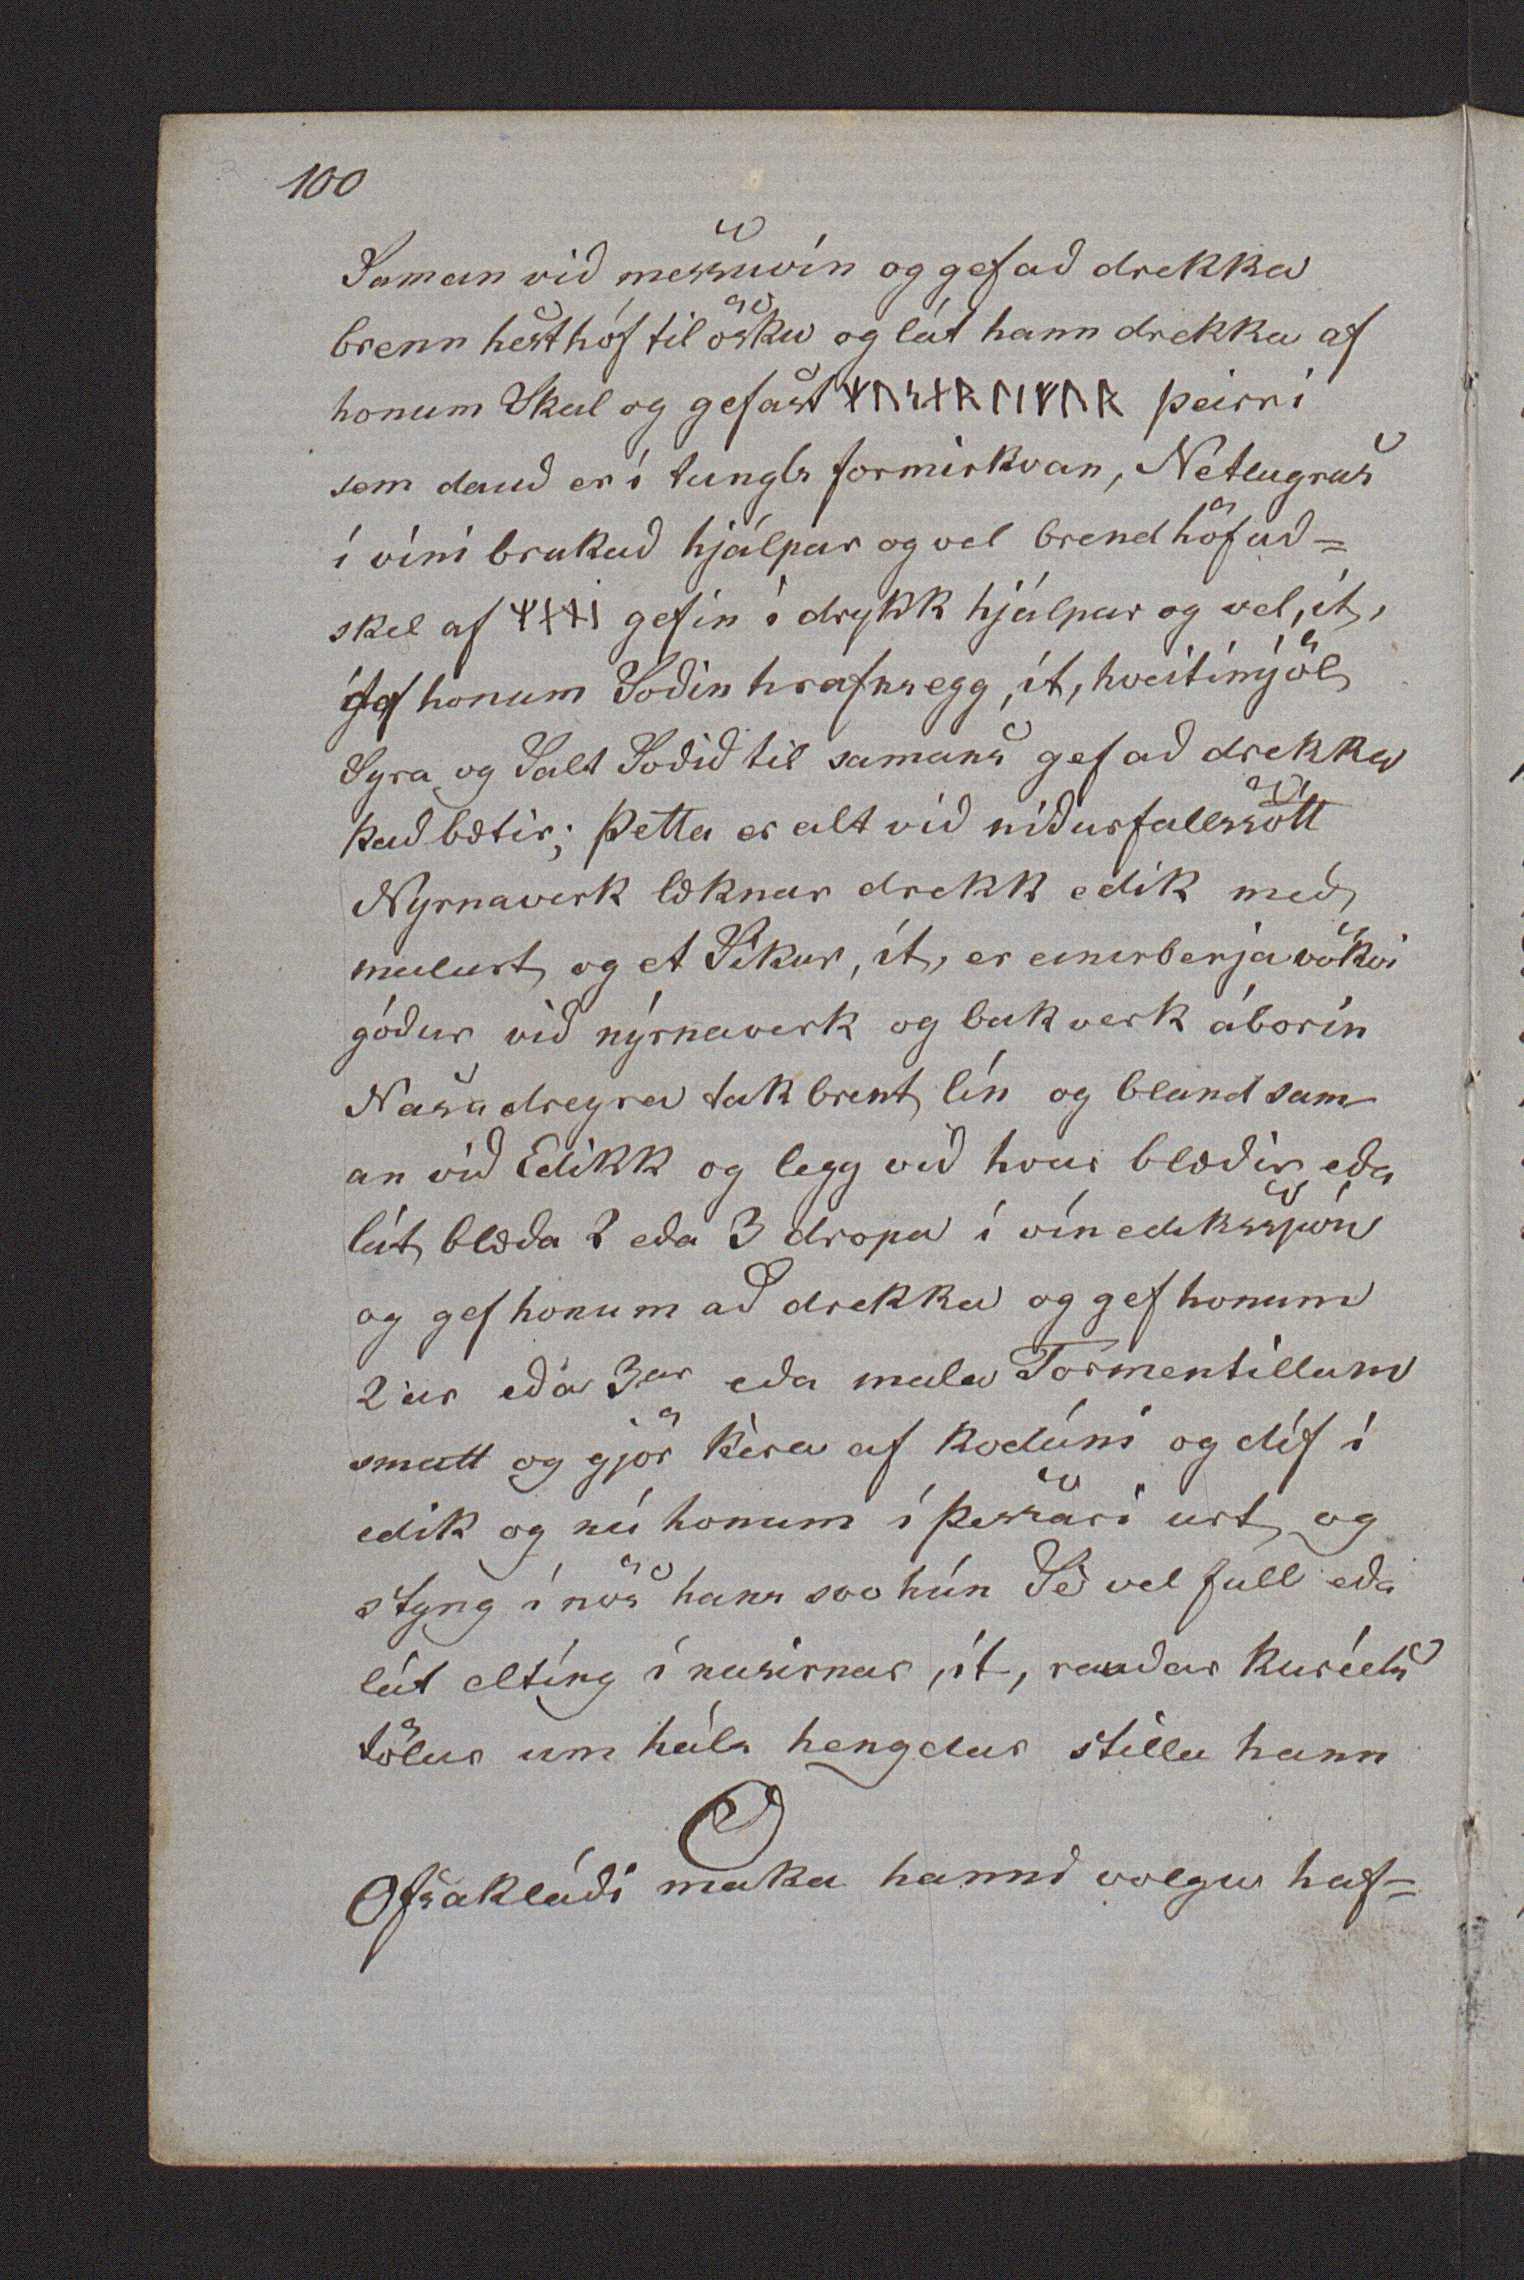 100
Saman við messuvín og gef að drekka
brenn hesthóf til ösku og lát hann drekka af
honum Skal og gefast ᛉᚢᛋᚾᚱᛚᛁᚠᚢᚱ þeirri
sem dauð er í tungls formirkvan, Netlugras
í víni brukað hjálpar og vel brend höfuð=
skel af ᛘᚬᚾᛁ gefin í drykk hjálpar og vel, ít,
gef honum Soðin hrafnsegg, ít, hveitimjöl
Syra og Salt Soðið til samans gef að drekka
það bætir; Þetta er alt við niðurfallssótt
Nyrnaverk læknar drekk edik með
malurt og et Sikur, ít, er einirberja vökvi
góður við nýrnaverk og bakverk áborin
Nasadreyra tak brent lín og bland sam-
an við Edikk og legg við hvar blæðir eða
lát blæða 2 eða 3 dropa í vínediksspón
og gef honum að drekka og gef honum
2ar eða 3ar eða mala Tormentillum
smatt og gjör kera af kodúni og díf í
edik og nú honum í þessari urt og
styng í nös hans svo hún Sè vel full eða
lát elting í nasirnar, ít, rauðar kuréls
tölur um háls hengdar stilla hann
O
Ofsakláði maka hannd volgu haf=